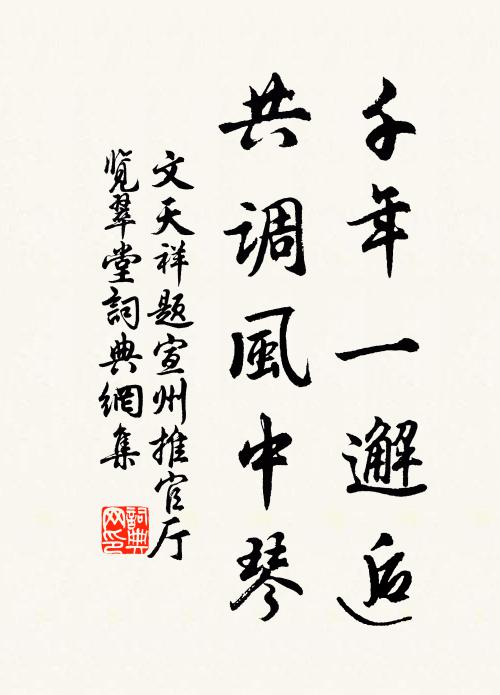 千年一邂逅
共调風中琴
文天祥题宣州推官厅
览翠堂詞典網集
詞典网印